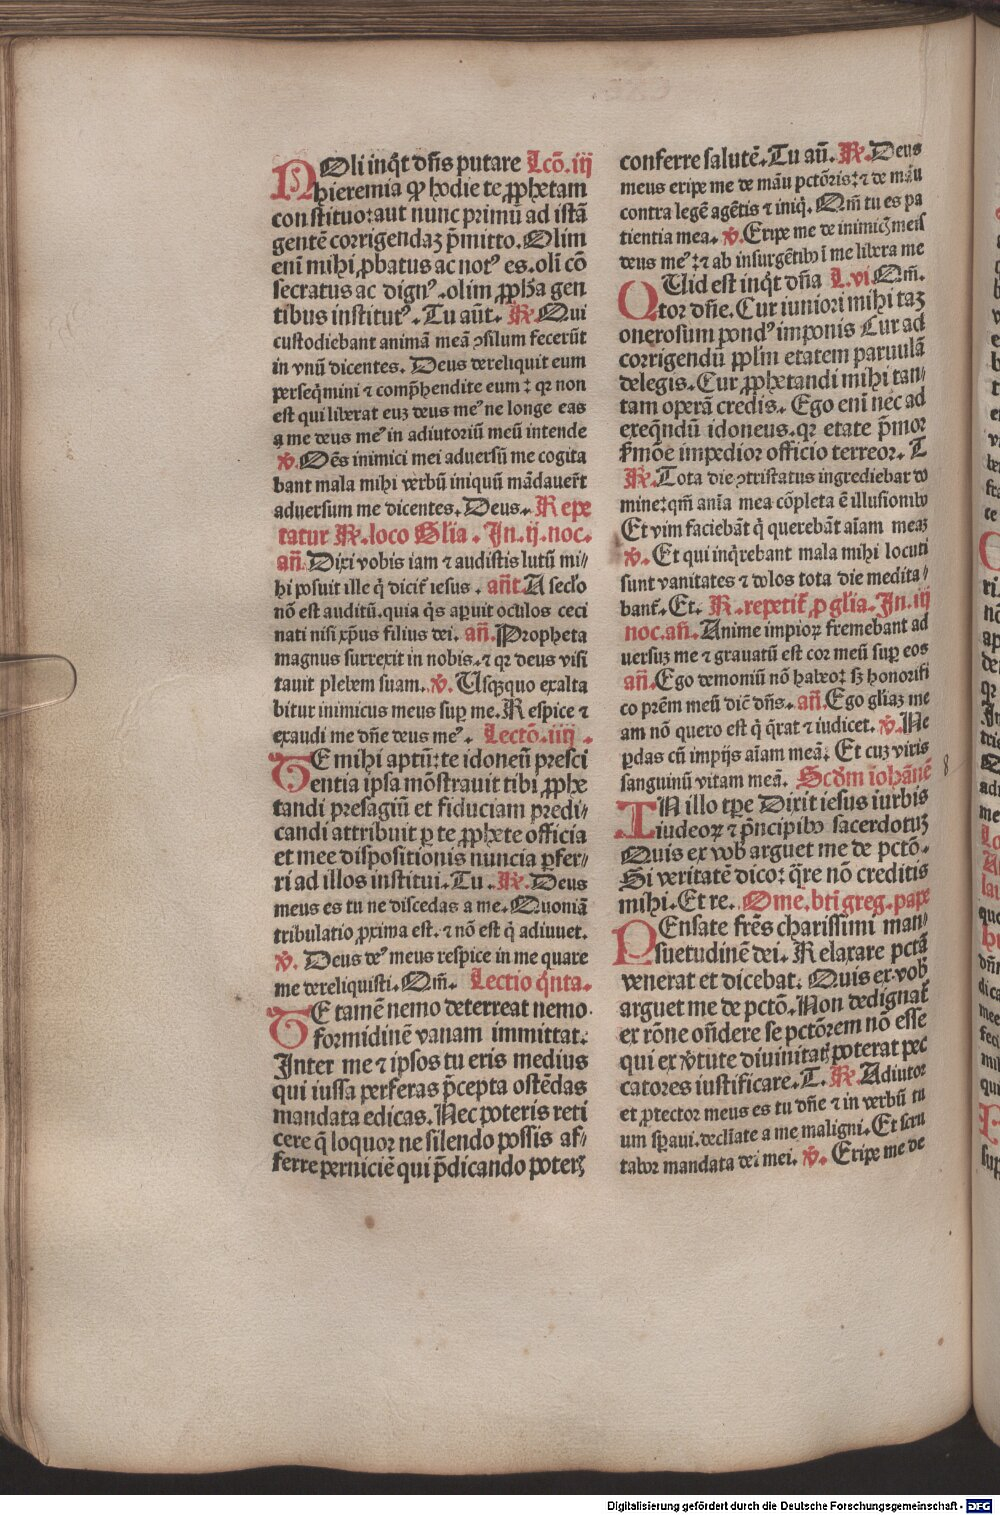 NOli inq̃t dñs putare Lcõ.iij
hieremia ꝙ hodie te ꝓphetam
constituo:aut nunc primũ ad istã
gentẽ corrigendaʒ p̃mitto. Olim
eni mihi ꝓbatus ac notꝰ es.oli cõ
secratus ac dignꝰ.olim ꝓph̃a gen
tibus institutꝰ. Tu aũt. ℟. Qui
custodiebant animã meã ꝯsilum fecerũt
in vnũ dicentes. Deus dereliquit eum
perseq̃mini ⁊ comp̃hendite eum: qꝛ non
est qui liberat euʒ deus meꝰ ne longe eas
a me deus meꝰ in adiutoriũ meũ intende
℣. Oẽs inimici mei aduersũ me cogita
bant mala mihi verbũ iniquũ mãdauer̃t
aduersum me dicentes. Deus. Repe
tatur ℟. loco Glĩa. Jn.ij.noc.
añ. Dixi vobis iam ⁊ audistis lutũ mi⸗
hi posuit ille q̃ dicit̃ iesus. añt. A sec̃lo
nõ est auditũ.quia q̃s aꝑuit oculos ceci
nati nisi xp̃us filius dei. añ. Propheta
magnus surrexit in nobis.⁊ qꝛ deus visi
tauit plebem suam. ℣. Vsqʒquo exalta
bitur inimicus meus suꝑ me. Respice ⁊
exaudi me dñe deus meꝰ. Lectõ.iiij.
TE mihi aptũ:te idoneũ presci
entia ipsa mõstrauit tibi ꝓphe
tandi presagiũ et fiduciam predi⸗
candi attribuit ꝑ te ꝓphete officia
et mee dispositionis nuncia ꝑfer⸗
ri ad illos institui. Tu. ℟. Deus
meus es tu ne discedas a me. Quoniã
tribulatio ꝓxima est.⁊ nõ est q̃ adiuuet.
℣. Deus deꝰ meus respice in me quare
me dereliquisti. Qm̃. Lectio q̃nta.
TE tamẽ nemo deterreat nemo
formidinẽ vanam immittat.
Jnter me ⁊ ipsos tu eris medius
qui iussa perferas p̃cepta ostẽdas
mandata edicas. Nec poteris reti
cere q̃ loquor ne silendo possis af⸗
ferre perniciẽ qui p̃dicando poterʒ
conferre salutẽ. Tu aũ. ℟. Deus
meus eripe me de mãu pctõris:⁊ de mãu
contra legẽ agẽtis ⁊ iniq̃. Qm̃ tu es pa
tientia mea. ℣. Eripe me de inimicʒ meis
deus meꝰ:⁊ ab insurgẽtibꝰ ĩ me libera me
QUid est inq̃t dñia L.vi. Qm̃.
tor dñe. Cur iuniori mihi taʒ
onerosum pondꝰ imponis Cur ad
corrigendũ ppl̃m etatem paruulã
delegis. Cur ꝓphetandi mihi tan⸗
tam operã credis. Ego eni nec ad
exeq̃ndũ idoneus.qꝛ etate p̃mor
s̃mõe impedior officio terreor. T
℟. Tota die ꝯtristatus ingrediebar do
mine:qm̃ anĩa mea cõpleta ẽ illusionibꝰ
Et vim faciebãt q̃ querebãt aĩam meaʒ
℣. Et qui inq̃rebant mala mihi locuti
sunt vanitates ⁊ dolos tota die medita⸗
bant̃. Et. ℟. repetit̃ ꝓ glĩa. Jn.iij
noc.añ. Anime impioꝝ fremebant ad
uersuʒ me ⁊ grauatũ est cor meũ suꝑ eos
añ. Ego demoniũ nõ habeo: sʒ honorifi
co prẽm meũ dic̃ dñs. añ. Ego glĩaʒ me
am nõ quero est q̃ q̃rat ⁊ iudicet. ℣. Ne
ꝑdas cũ impijs aĩam meã. Et cuʒ viris
sanguinũ vitam meã. Scd̃m iohãnẽ
IN illo tꝑe Dixit iesus turbis
iudeoꝝ ⁊ p̃ncipibꝰ sacerdotuʒ
Quis ex vob̃ arguet me de pctõ.
Si veritatẽ dico: q̃re nõ creditis
mihi. Et re. Ome. bti greg. pape
PEnsate frẽs charissimi man⸗
suetudinẽ dei. Relaxare pctã
venerat et dicebat. Quis ex vob̃
arguet me de pctõ. Non dedignat̃
ex rõne oñdere se pctõrem nõ esse
qui ex v̾tute diuinitatʒ poterat pec
catores iustificare. T. ℟. Adiutor
et ꝓtector meus es tu dñe ⁊ in verbũ tu
um sꝑaui.declĩate a me maligni. Et scru
tabor mandata dei mei. ℣. Eripe me de
Digitalisierung gefördert durch die Deutsche Forschungsgemeinschaft - DFG